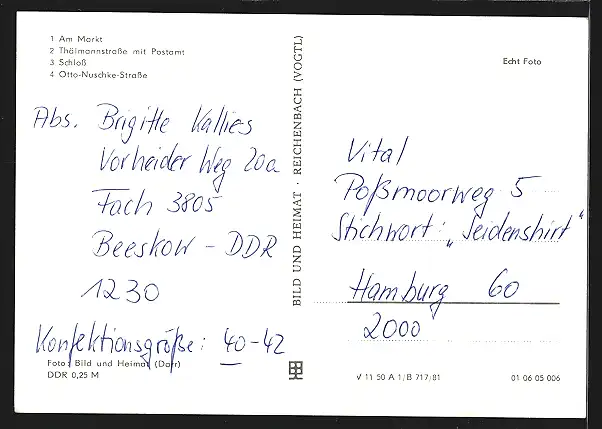 1 Am Markt
2 Thälmannstraße mit Postamt
3 Schloß
4 Otto-Nuschke-Straße
Abs. Brigitte Kallies
Vorheider Weg 20a
Fach 3805
Beeskow - DDR
1230
Konfektionsgröße: 40-42
Foto: Bild und Heimat (Darr)
DDR 0,25 M
BILD UND HEIMAT · REICHENBACH (VOGTL)
Echt Foto
Vital
Poßmoorweg 5
Stichwort: „Seidenshirt“
Hamburg 60
2000
V 11 50 A 1/B 717/81
01 06 05 006